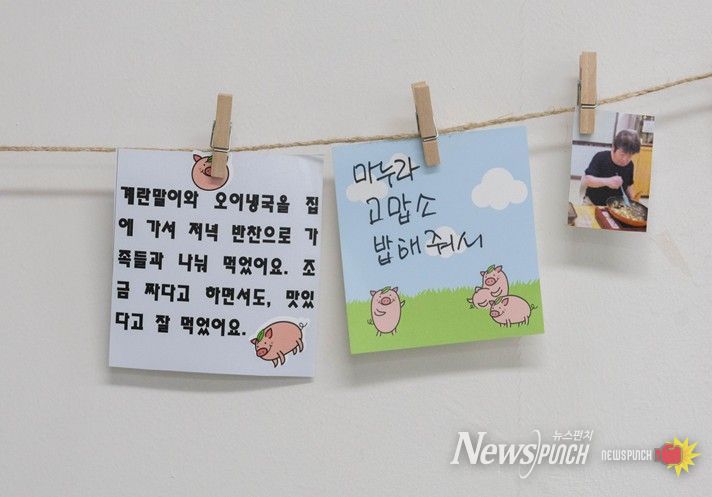 계란말이와 오이냉국을 집
에 가서 저녁 반찬으로 가
족들과 나눠 먹었어요. 조
금 짜다고 하면서도, 맛있
다고 잘 먹었어요.
마누라
고맙소
밥해줘서
뉴스펀치
NewsPUNCH
NEWSPUNCH